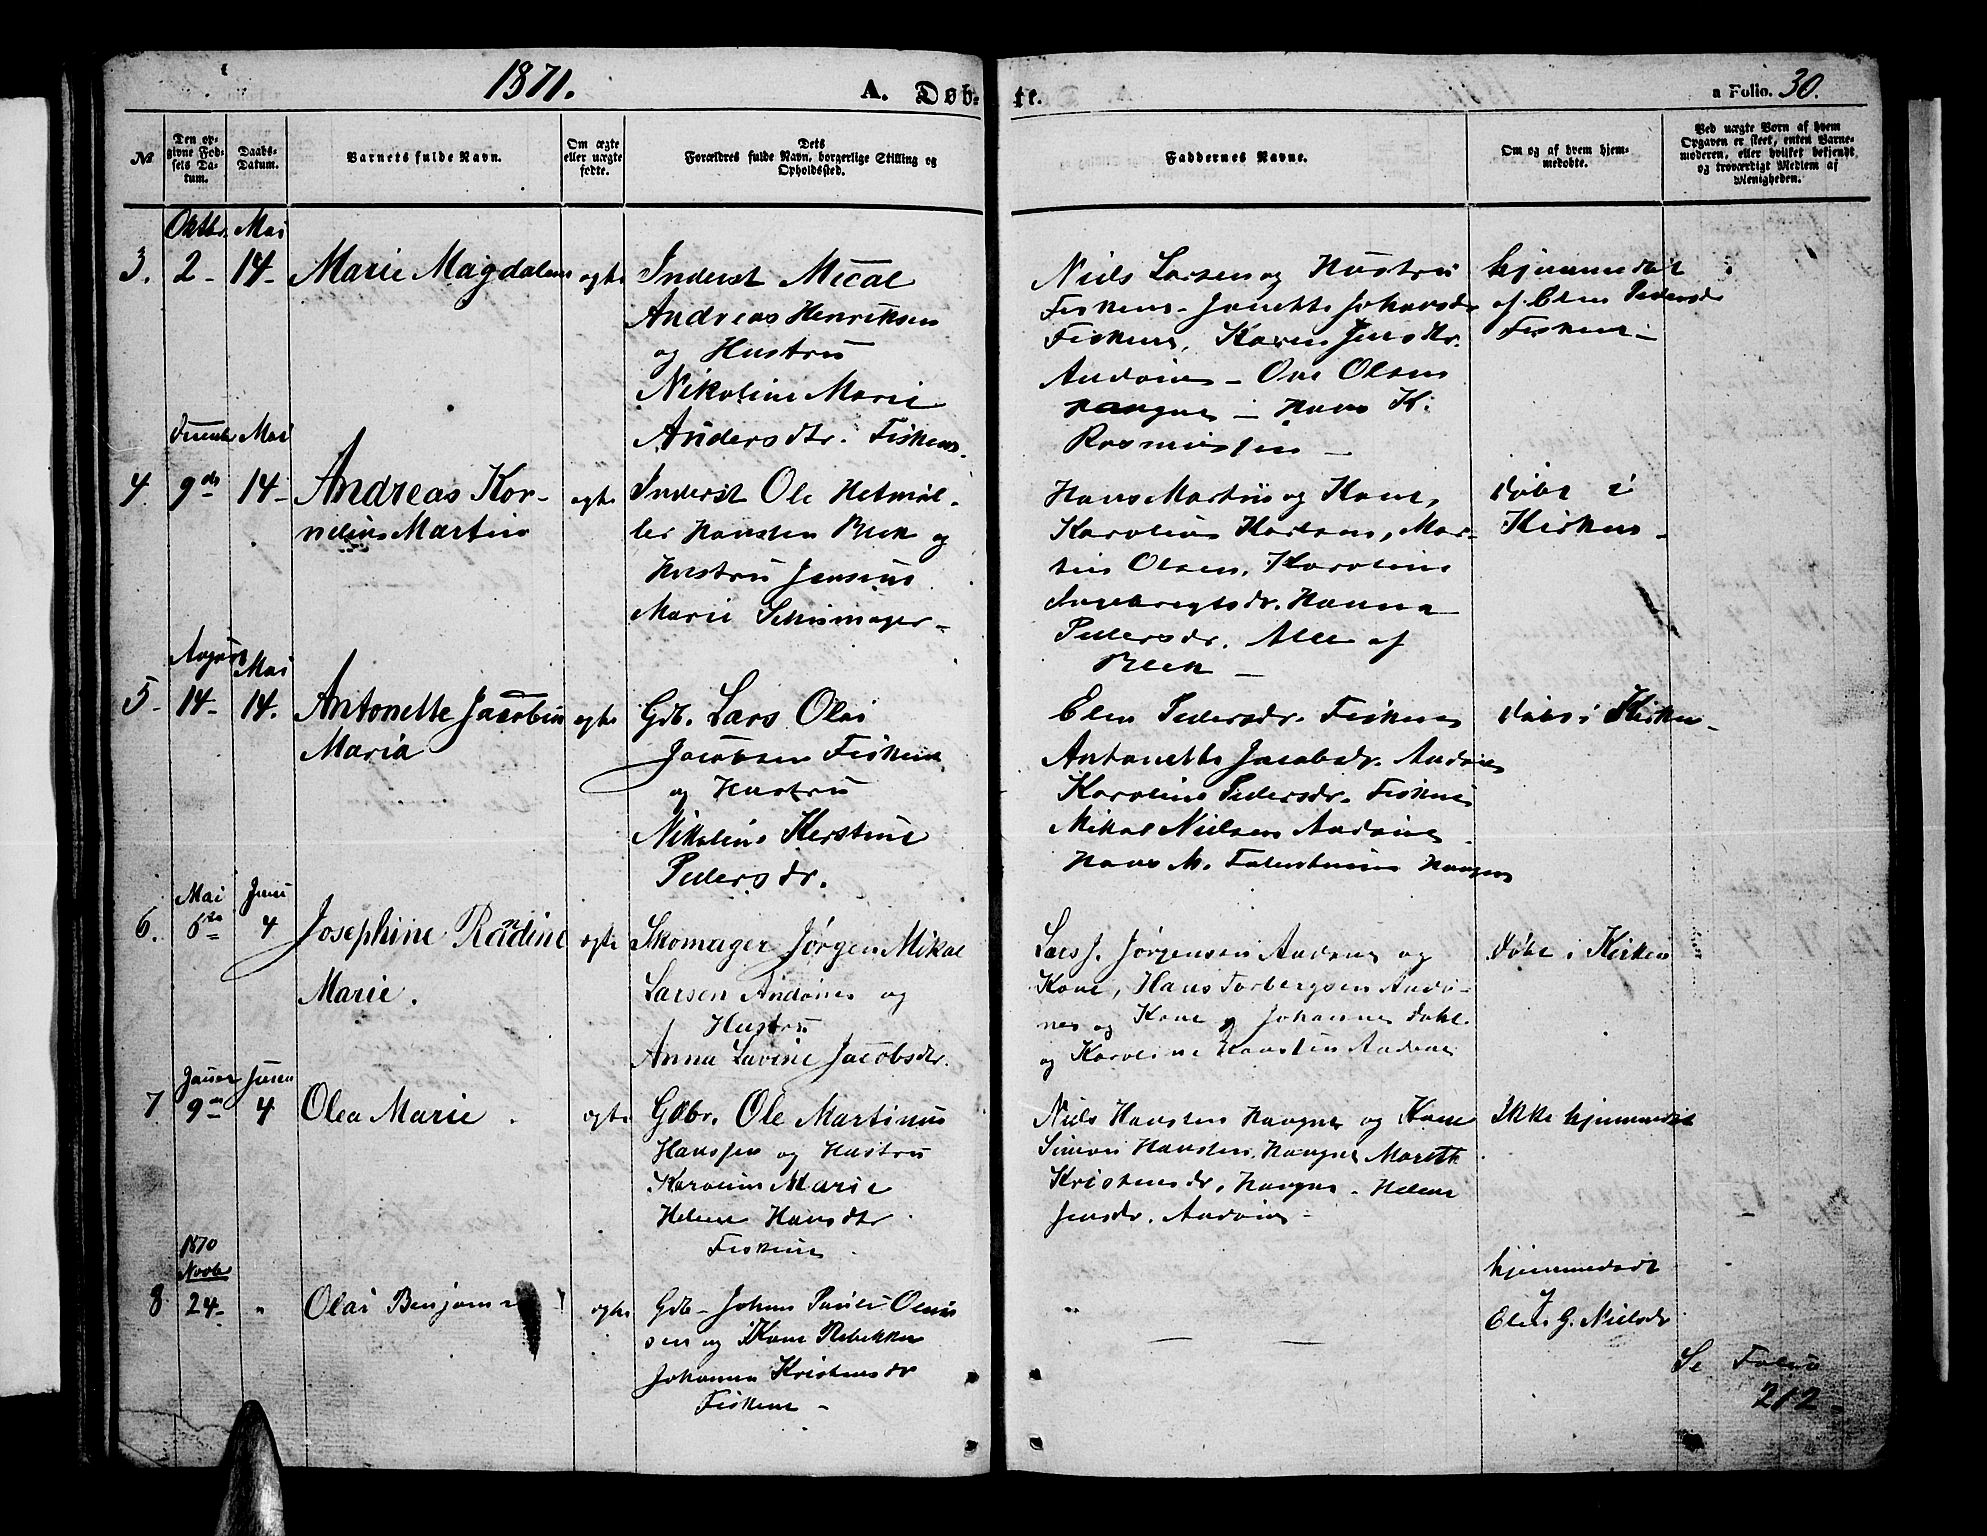 1871.
A. Døb-
te.
a Folio. 30.
№
Den op-
givne Fød-
sels Da-
tum.
Daabs-
Datum.
Barnets fulde Navn.
Om ægte
eller uægte
fødte.
Dets
Forældres fulde Navn, borgerlige Stilling og
Opholdssted.
Faddernes Navne.
Om og af hvem hjem-
medøbte.
Ved uægte Børn af hvem
Opgaven er skeet, enten Barne-
moderen, eller hvilket bekjendt
og troværdigt Medlem af
Menigheden.
Oktbr. Mai
3. 2- 14- Marie Magdalena ægte
Inderst Mical
Andreas Henriksen
og Hustru
Nikoline Marie
Andersdtr. Fiskenes.
Niels Larsen og Hustru
Fiskenes - Johansdr
Fiskenes, Karen Jensdtr.
Andønes - Ove Olsen
Haugnes - Hans K.
hjemmedøbt
af Elen Pedersdr
Fiskenes -
Mai
4. 9de 14- Andreas Kor-
nelius Martin
ægte
Inderst Ole Hetmøl-
ler Hansten Bleik og
Hustru Jensine
Marie
Hans Martin og Kone,
Karoline Karlsen, Mar-
tin Olsen, Karoline
Ingebregtsdr. Hanna
Pedersdr. Alle af
Bleik -
døbt i
Kirken.
August Mai
5- 14- 14. Antonette Jacobine
Maria
ægte
Gdb. Lars Olai
Jacobsen Fiskenes
og Hustru
Nikoline Kerstine
Pedersdr.
Elen Pedersdr. Fiskenes
Antonette Jacobsdr. Andønes
Karoline Pedersdr. Fiskenes
Mikal Nielsen Andønes
Hans M. Haugnes
døbt i Kirken -
Mai Juni
6. 6te 4 Josephine Randine
Marie.
ægte
Skomager Jørgen Mikal
Larsen Andønes og
Hustru
Anna Lavine Jacobsdr.
Lars J. Jørgensen Andønes og
Kone, Hans Torbergsen Andø-
nes og Kone, Johannes Dahl
og Karoline Hansten Andønes
døbt i Kirken
Januar Juni
7 9de 4 Olea Marie.
ægte
Gdbr. Ole Martinus
Hanssen og Hustru
Karoline Marie
Helene Hansdtr
Fiskenes
Niels Hansten Haugnes og Kone
Simon Hansten, Haugnes Mareth
Kristensdr, Haugnes - Helene
Jensdr. Andønes -
Ikke hjemmedøbt
1870
Novbr
8 24- " Olai Benjamin
ægte
Gdb - Johan Paulus Olaus
sen og Kone Rebekka
Johanna Kristensdr
Fiskenes -
"
hjemmedøbt
af
Elen G. Nielsdr
Se Folio
212 -